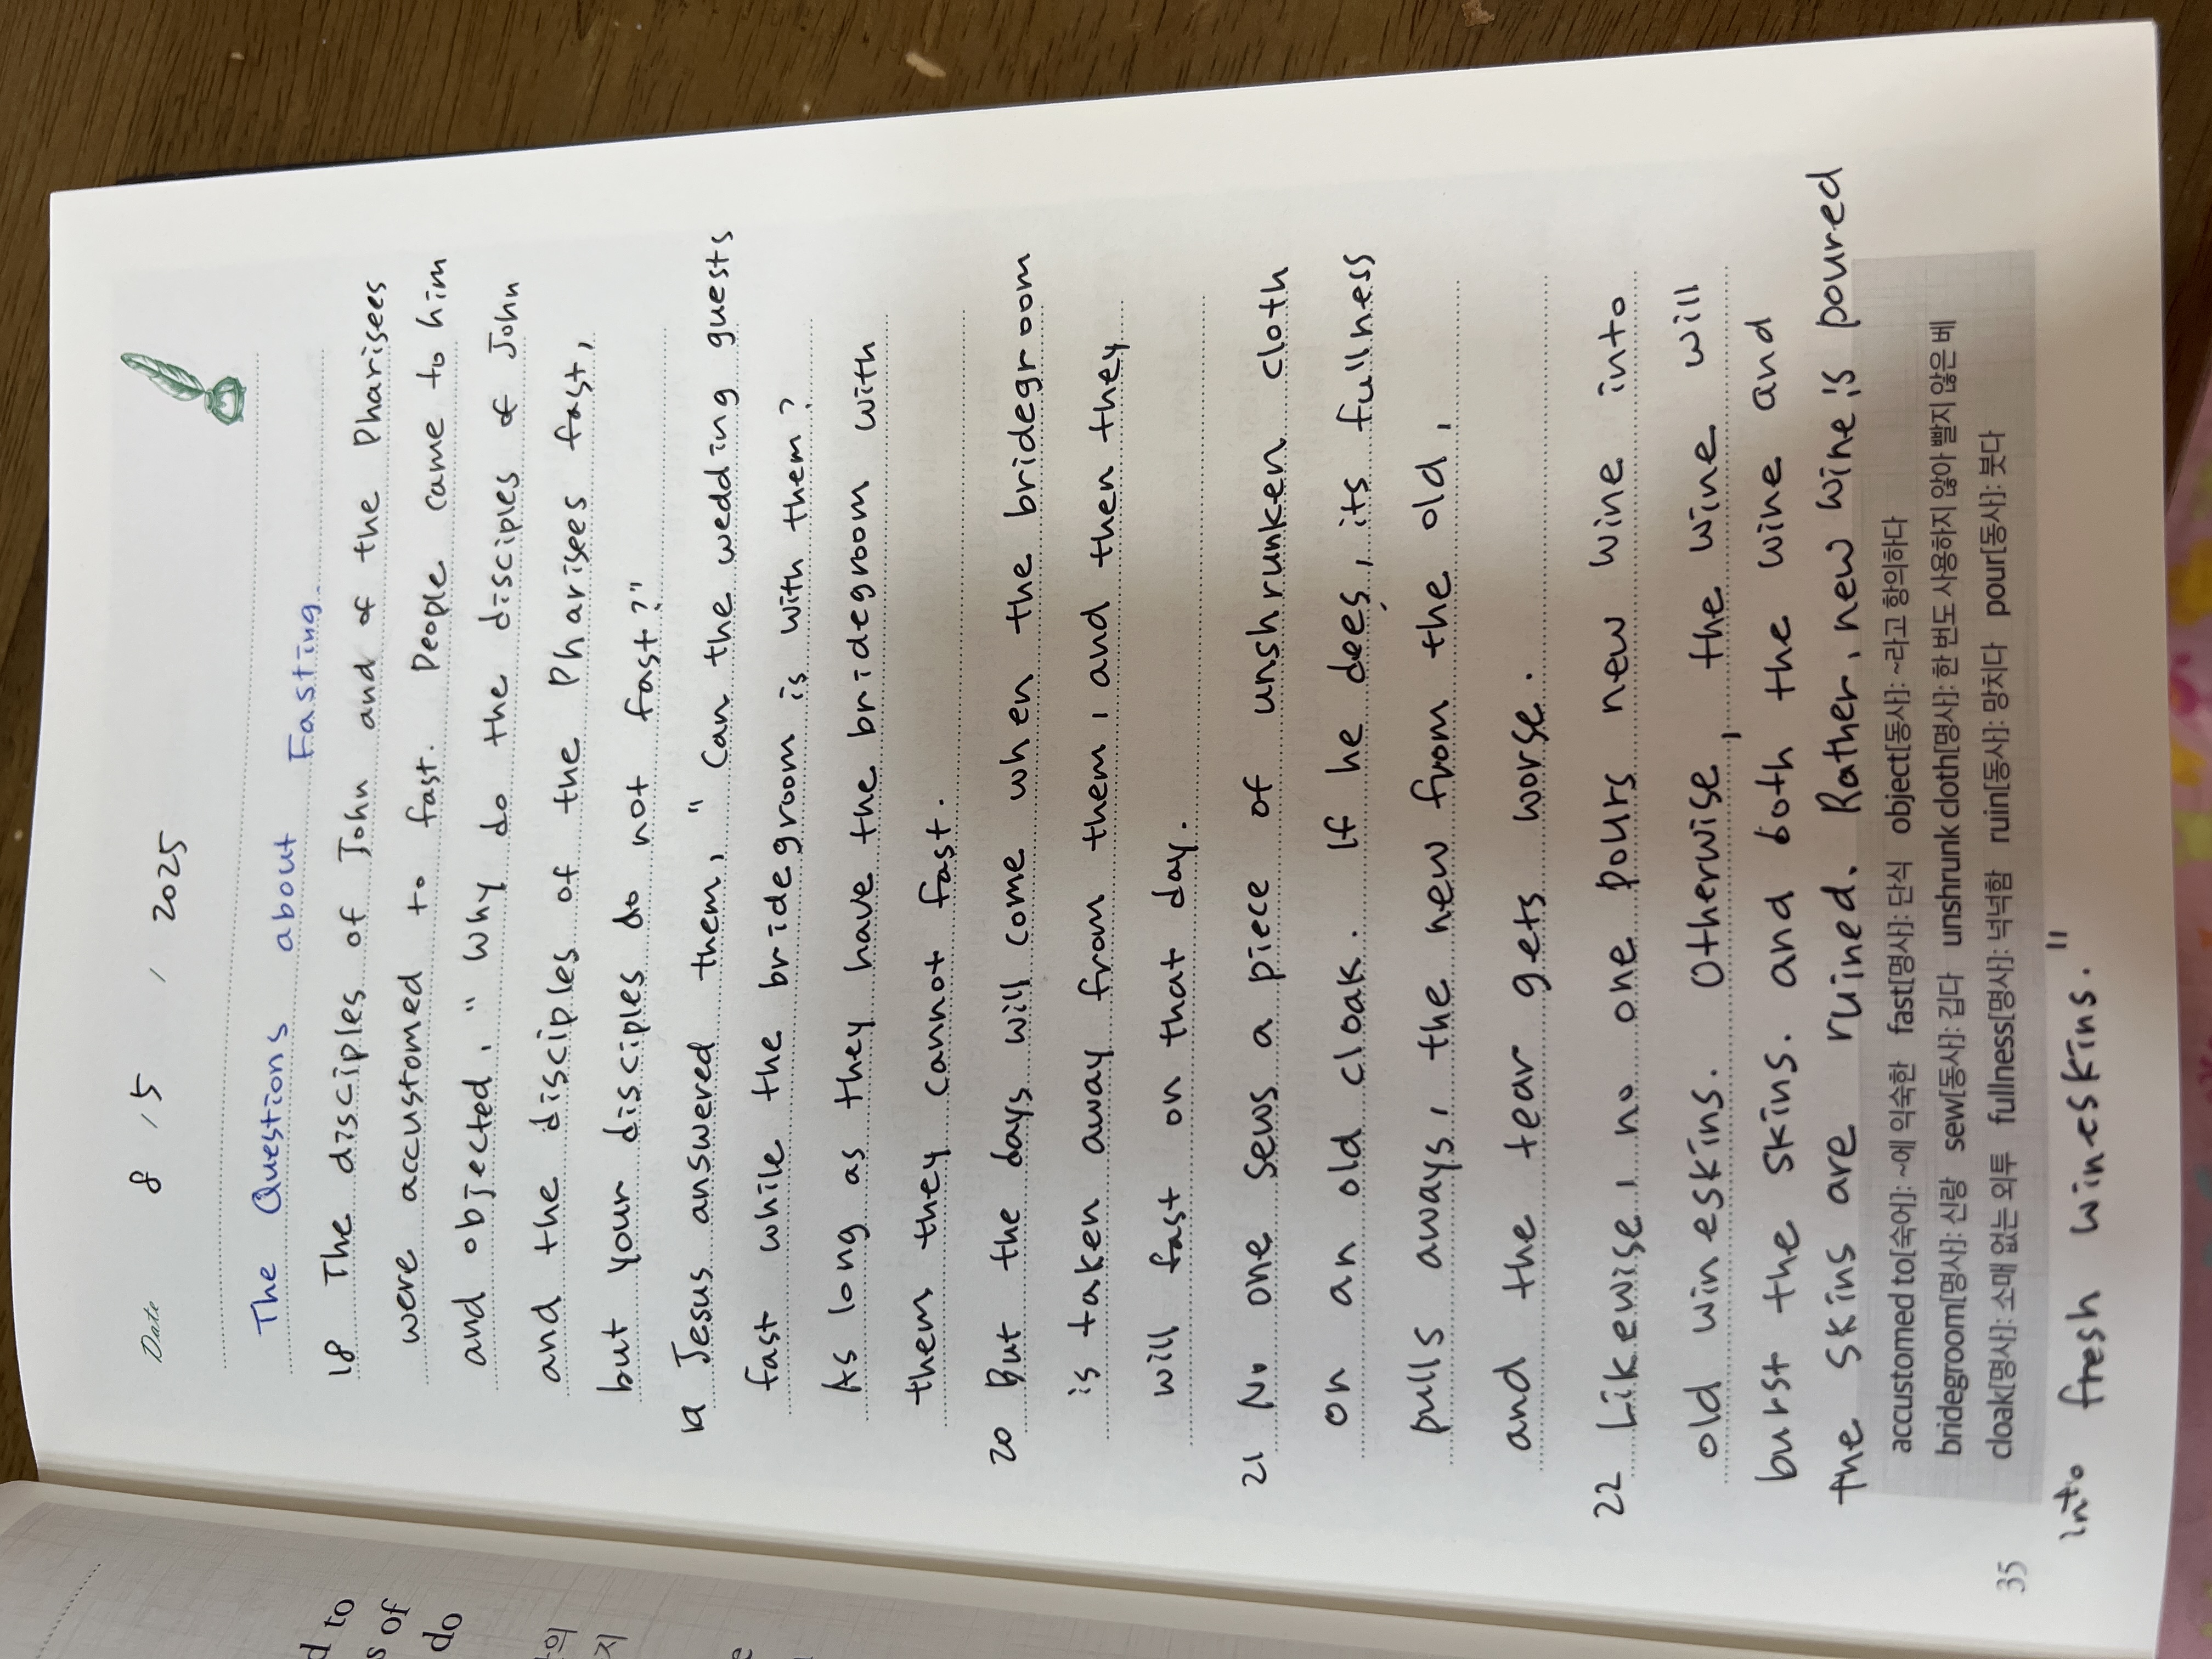 Date 8 / 5 / 2025
The Questions about Fasting
18 The disciples of John and of the Pharisees
were accustomed to fast. People came to him
and objected, "Why do the disciples of John
and the disciples of the Pharisees fast,
but your disciples do not fast?"
19 Jesus answered them, "Can the wedding guests
fast while the bridegroom is with them?
As long as they have the bridegroom with
them they cannot fast.
20 But the days will come when the bridegroom
is taken away from them, and then they
will fast on that day.
21 No one sews a piece of unshrunken cloth
on an old cloak. If he dees, its fullness
pulls aways, the new from the old,
and the tear gets worse.
22 Likewise, no one pours new wine into
old wineskins. Otherwise, the wine will
burst the skins. and both the wine and
the skins are ruined. Rather, new wine is poured
accustomed to[숙어]: ~에 익숙한 fast[명사]: 단식 object[동사]: ~라고 항의하다
bridegroom[명사]: 신랑 sew[동사]: 깁다 unshrunk cloth[명사]: 한 번도 사용하지 않아 빨지 않은 베
cloak[명사]: 소매 없는 외투 fullness[명사]: 넉넉함 ruin[동사]: 망치다 pour[동사]: 붓다
into fresh wineskins."
35
d to
s of
do
의
지
e